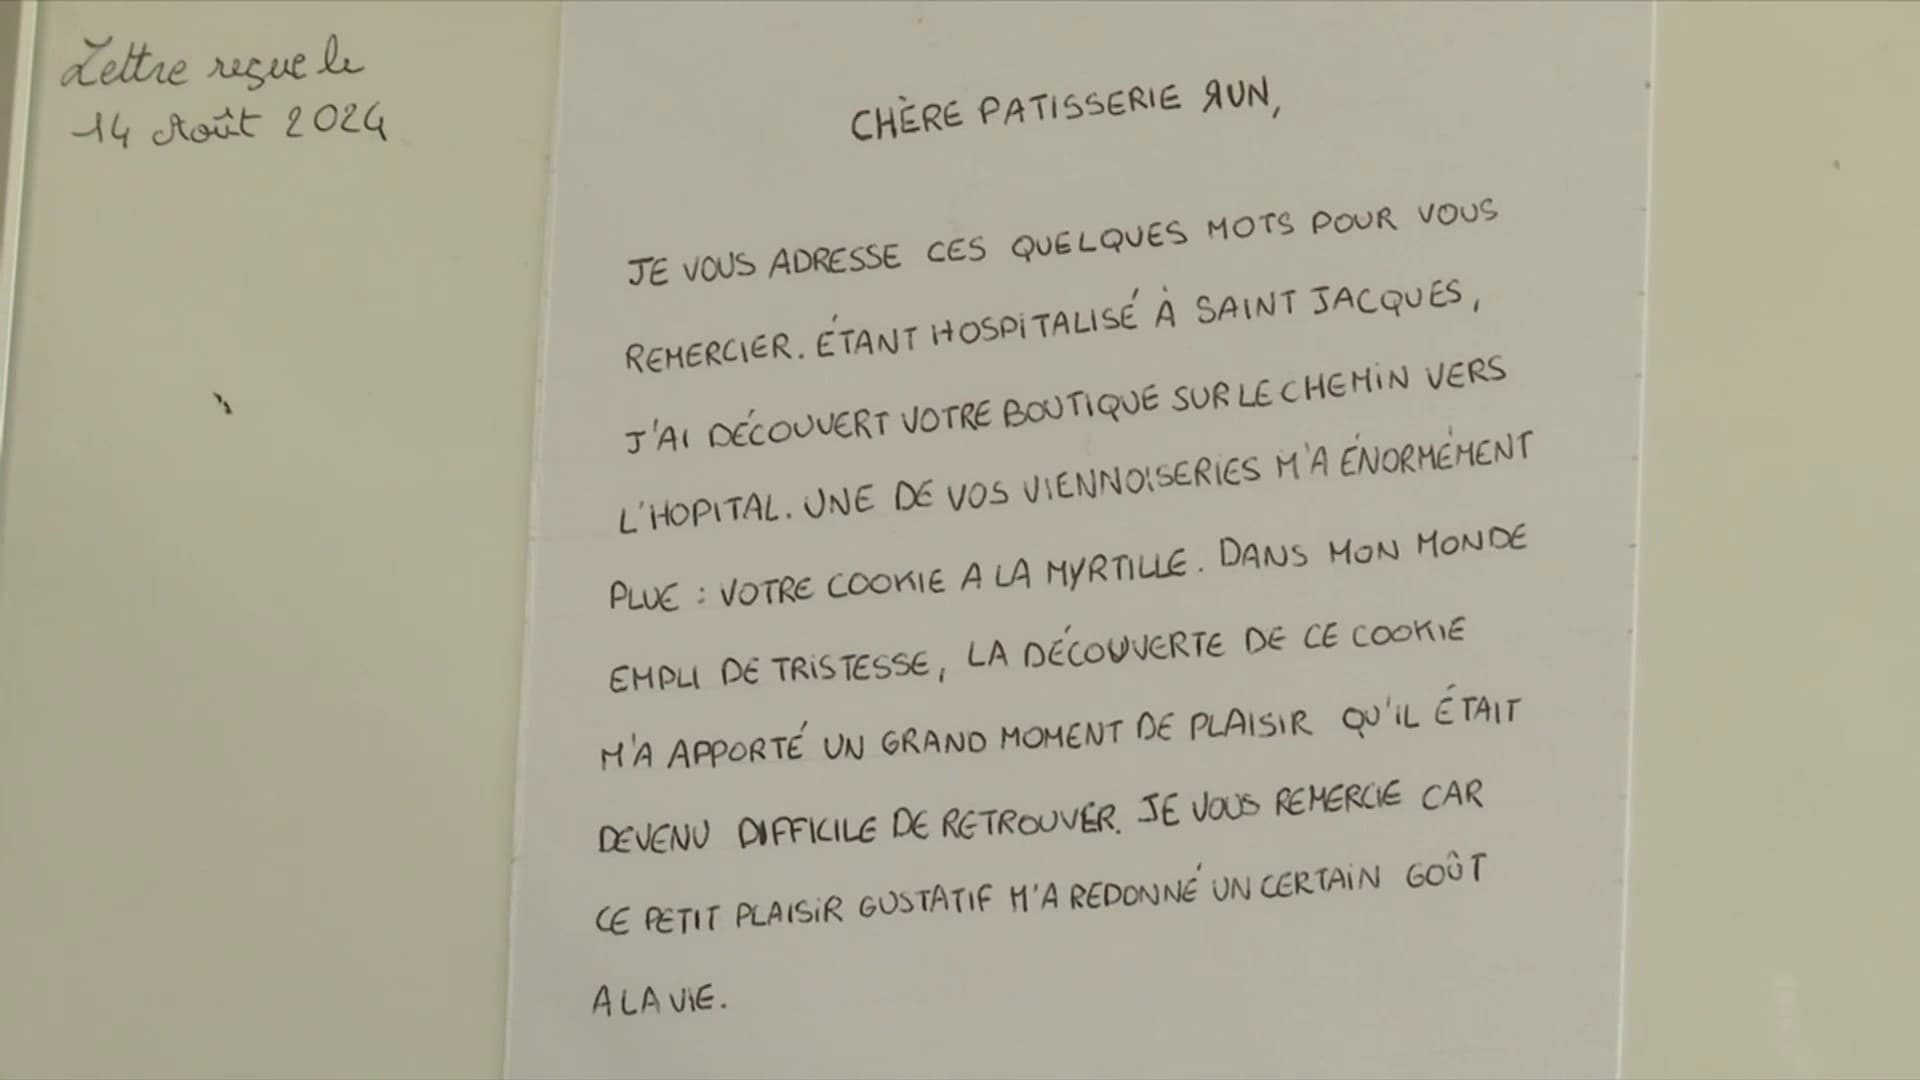 Lettre reçue le
14 Août 2024
CHÈRE PATISSERIE RUN,
JE VOUS ADRESSE CES QUELQUES MOTS POUR VOUS
REMERCIER. ÉTANT HOSPITALISÉ À SAINT JACQUES,
J'AI DÉCOUVERT VOTRE BOUTIQUE SUR LE CHEMIN VERS
L'HOPITAL. UNE DE VOS VIENNOISERIES M'A ÉNORMÉMENT
PLUE : VOTRE COOKIE A LA MYRTILLE. DANS MON MONDE
EMPLI DE TRISTESSE, LA DÉCOUVERTE DE CE COOKIE
M'A APPORTÉ UN GRAND MOMENT DE PLAISIR QU'IL ÉTAIT
DEVENU DIFFICILE DE RETROUVER. JE VOUS REMERCIE CAR
CE PETIT PLAISIR GUSTATIF M'A REDONNÉ UN CERTAIN GOÛT
A LA VIE.